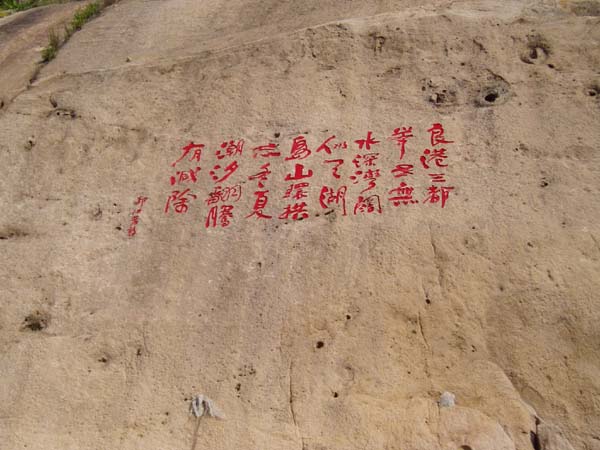 良港三都
举世無
水深湾阔
似天湖
島山環拱
冬夏
潮汐翻騰
有减除